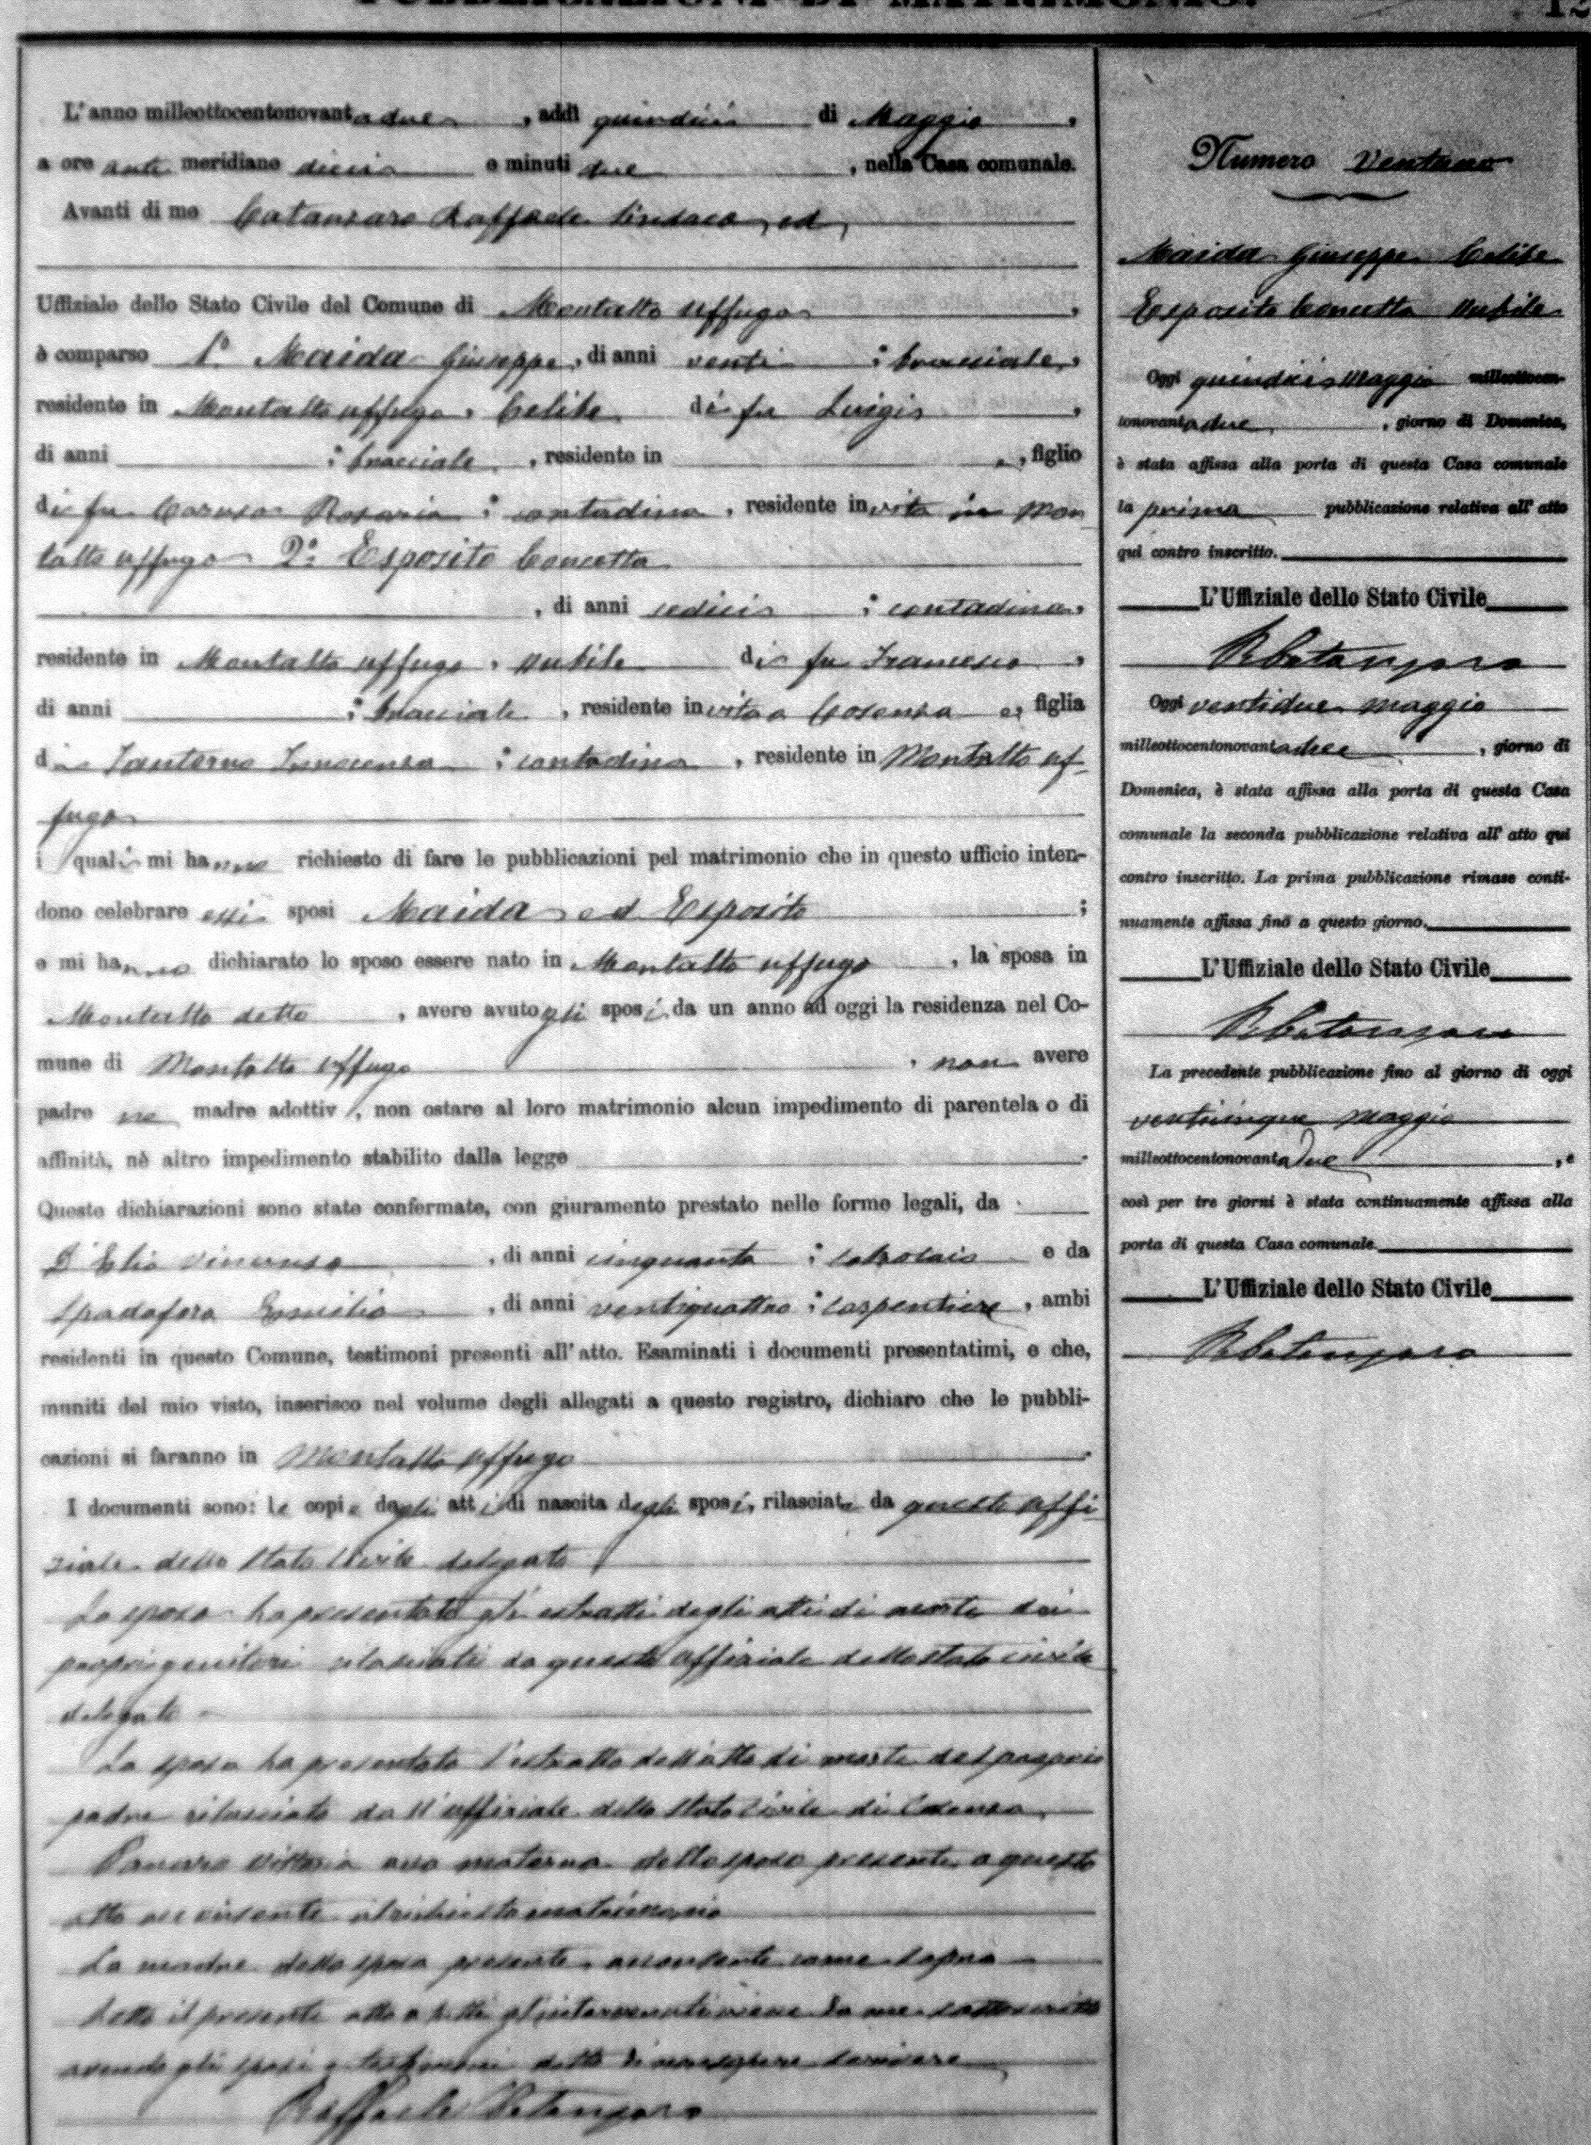 PUBBLICAZIONI DI MATRIMONIO.
12
L'anno milleottocentonovantadue, addì quindici di Maggio,
a ore anti meridiane dieci e minuti due, nella Casa comunale.
Avanti di me Catanzaro Raffaele Sindaco, ed
Uffiziale dello Stato Civile del Comune di Montalto Uffugo,
è comparso 1° Maida Giuseppe, di anni venti; bracciale,
residente in Montalto Uffugo, Celibe di fu Luigi,
di anni ; bracciale, residente in , figlio
di fu Caruso Rosaria; contadina, residente in vita in Mon
talto Uffugo 2° Esposito Concetta
, di anni sedici; contadina,
residente in Montalto Uffugo, nubile di fu Francesco,
di anni ; bracciale, residente in vita a Cosenza e, figlia
di Innocenza; contadina, residente in Montalto Uf-
fugo
i quali mi hanno richiesto di fare le pubblicazioni pel matrimonio che in questo ufficio inten-
dono celebrare essi sposi Maida ed Esposito;
e mi hanno dichiarato lo sposo essere nato in Montalto Uffugo, la sposa in
Montalto detto, avere avuto gli sposi da un anno ad oggi la residenza nel Co-
mune di Montalto Uffugo, non avere
padre ne madre adottivi, non ostare al loro matrimonio alcun impedimento di parentela o di
affinità, nè altro impedimento stabilito dalla legge.
Queste dichiarazioni sono state confermate, con giuramento prestato nelle forme legali, da
D'Elia Vincenzo, di anni cinquanta; calzolaio e da
Spadafora Emilio, di anni ventiquattro; carpentiere, ambi
residenti in questo Comune, testimoni presenti all'atto. Esaminati i documenti presentatimi, e che,
muniti del mio visto, inserisco nel volume degli allegati a questo registro, dichiaro che le pubbli-
cazioni si faranno in Montalto Uffugo.
I documenti sono: le copie degli atti di nascita degli sposi, rilasciate da questo Uffi-
ziale dello Stato Civile delegato
Lo sposo ha presentato gli estratti degli atti di morte dei
propri genitori rilasciati da questo Uffiziale dello stato civile
delegato
La sposa ha presentato l'estratto dell'atto di morte del proprio
padre rilasciato dall'uffiziale dello Stato Civile di Cosenza
Vittoria ava materna dello sposo presente a questo
atto acconsente al richiesto matrimonio
La madre della sposa presente, acconsente come sopra
Letto il presente atto a tutti gl'intervenuti viene da me sottoscritto
avendo gli sposi e testimoni detto di non sapere scrivere
Raffaele Catanzaro
Numero Ventuno
Maida Giuseppe Celibe
Esposito Concetta Nubile
Oggi quindici Maggio milleottocen-
tonovantadue, giorno di Domenica,
è stata affissa alla porta di questa Casa comunale
la prima pubblicazione relativa all'atto
qui contro inscritto.
L'Uffiziale dello Stato Civile
R Catanzaro
Oggi ventidue maggio
milleottocentonovantadue, giorno di
Domenica, è stata affissa alla porta di questa Casa
comunale la seconda pubblicazione relativa all'atto qui
contro inscritto. La prima pubblicazione rimase conti-
nuamente affissa fino a questo giorno.
L'Uffiziale dello Stato Civile
R Catanzaro
La precedente pubblicazione fino al giorno di oggi
venticinque Maggio
milleottocentonovantadue, e
così per tre giorni è stata continuamente affissa alla
porta di questa Casa comunale.
L'Uffiziale dello Stato Civile
R Catanzaro